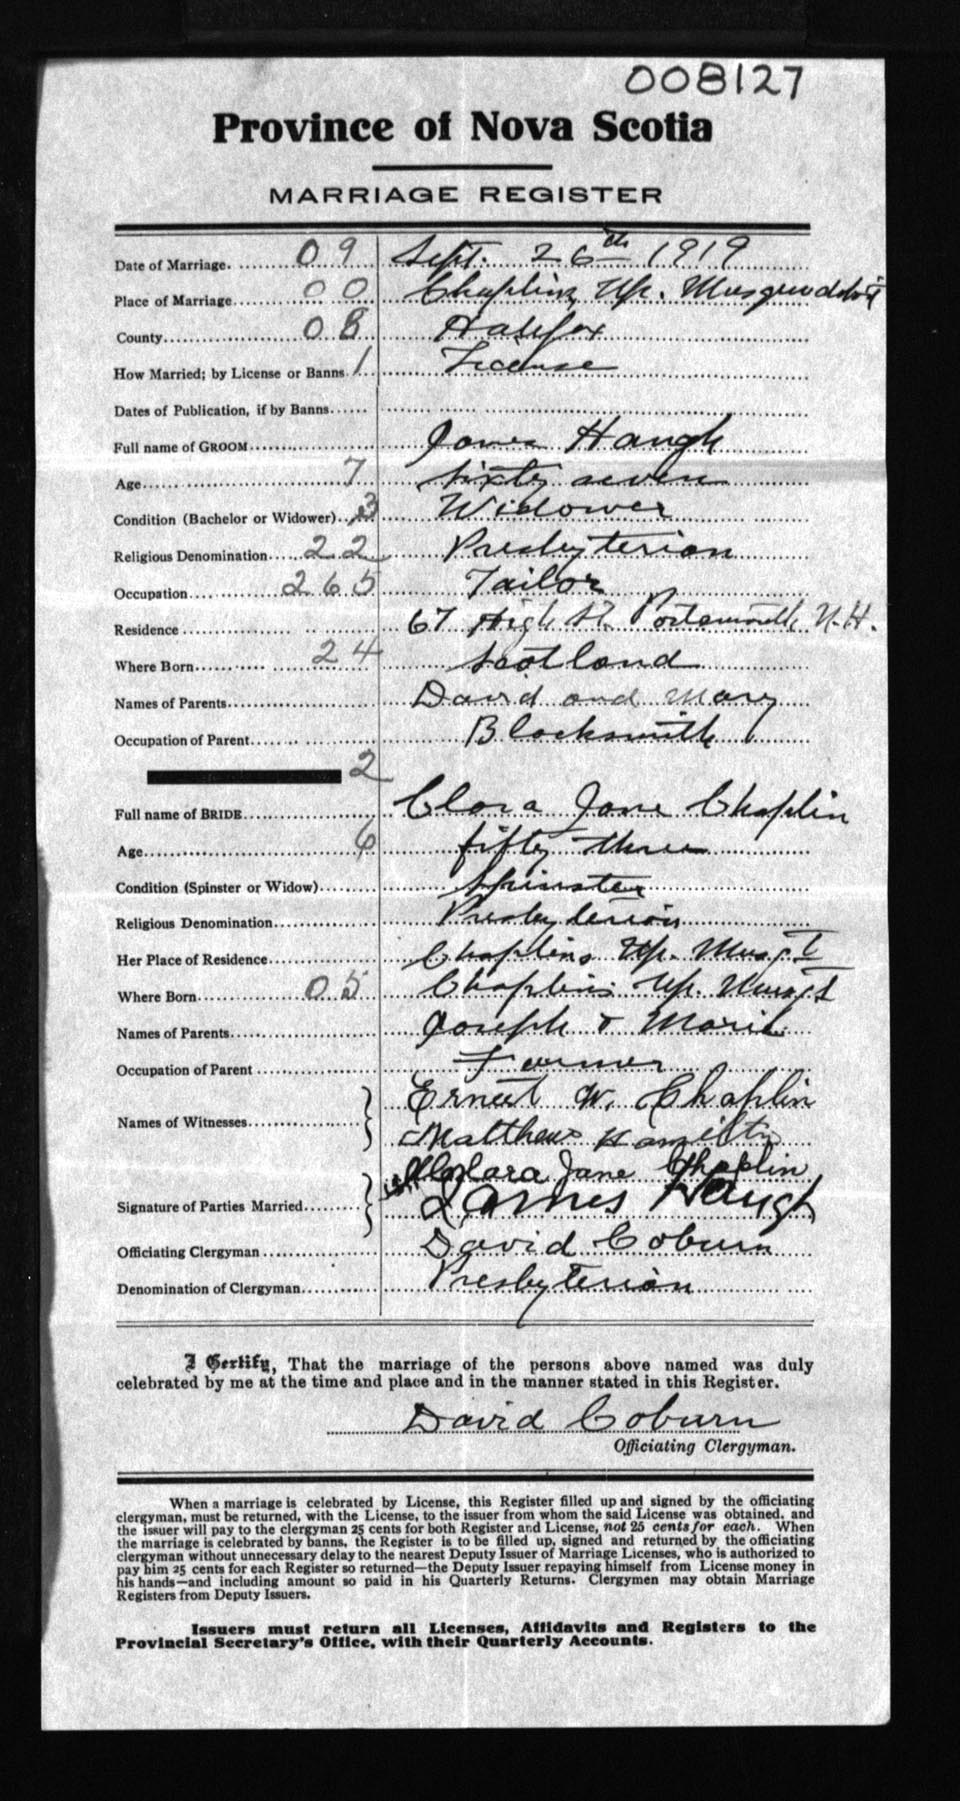 008127
Province of Nova Scotia
MARRIAGE REGISTER
Date of Marriage. 09 Sept. 26th 1919
Place of Marriage 00 Chaplins, Up. Musquodoboit
County 08 Halifax
How Married; by License or Banns. 1 License
Dates of Publication, if by Banns
Full name of GROOM James Haugh
Age 7 sixty seven
Condition (Bachelor or Widower) 3 Widower
Religious Denomination 22 Presbyterian
Occupation 265 Tailor
Residence 67 High St. Portsmouth N.H.
Where Born 24 Scotland
Names of Parents David and Mary
Occupation of Parent Blacksmith
2
Full name of BRIDE Clara Jane Chaplin
Age 6 fifty three
Condition (Spinster or Widow) Spinster
Religious Denomination Presbyterian
Her Place of Residence Chaplins Up. Musqt
Where Born 05 Chaplins Up. Musqt
Names of Parents Joseph & Maria
Occupation of Parent Farmer
Names of Witnesses Ernest W. Chaplin
Matthew Hamilton
Clara Jane Chaplin
Signature of Parties Married James Haugh
Officiating Clergyman David Coburn
Denomination of Clergyman Presbyterian
I Certify, That the marriage of the persons above named was duly
celebrated by me at the time and place and in the manner stated in this Register.
David Coburn
Officiating Clergyman.
When a marriage is celebrated by License, this Register filled up and signed by the officiating
clergyman, must be returned, with the License, to the issuer from whom the said License was obtained, and
the issuer will pay to the clergyman 25 cents for both Register and License, not 25 cents for each. When
the marriage is celebrated by banns, the Register is to be filled up, signed and returned by the officiating
clergyman without unnecessary delay to the nearest Deputy Issuer of Marriage Licenses, who is authorized to
pay him 25 cents for each Register so returned—the Deputy Issuer repaying himself from License money in
his hands—and including amount so paid in his Quarterly Returns. Clergymen may obtain Marriage
Registers from Deputy Issuers.
Issuers must return all Licenses, Affidavits and Registers to the
Provincial Secretary's Office, with their Quarterly Accounts.